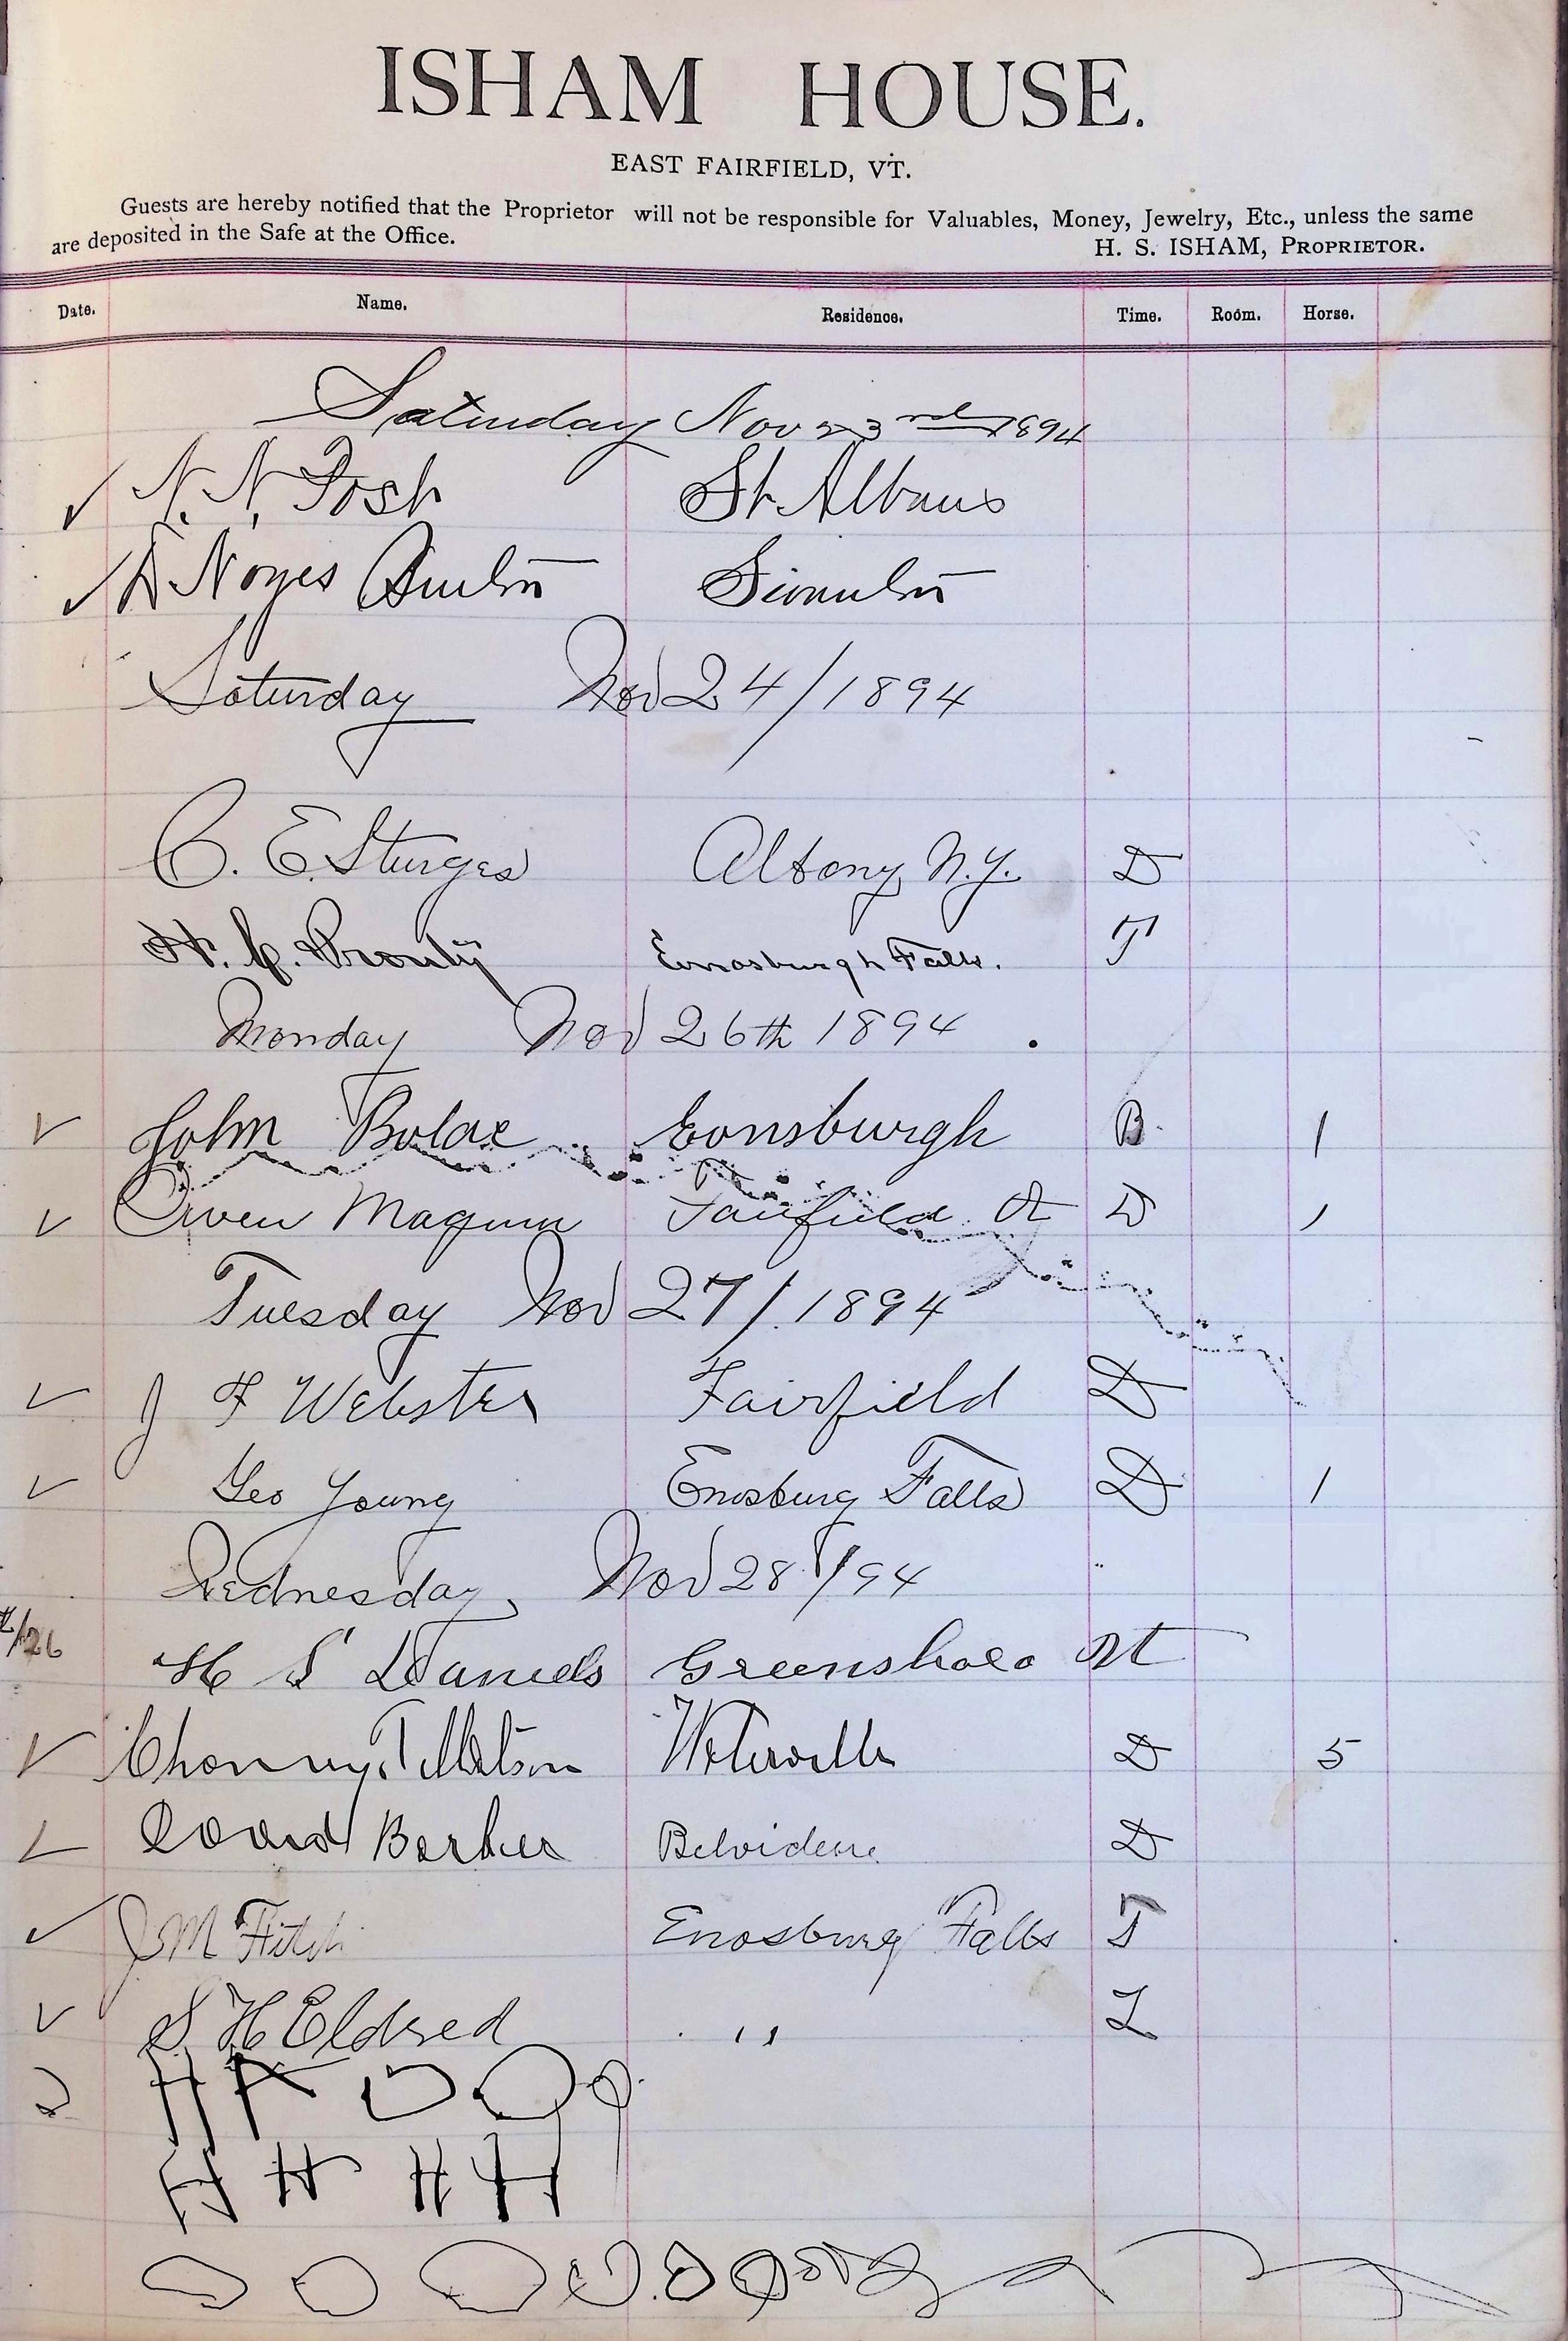 ISHAM HOUSE.
EAST FAIRFIELD, VT.
Guests are hereby notified that the Proprietor will not be responsible for Valuables, Money, Jewelry, Etc., unless the same
are deposited in the Safe at the Office.
H. S. ISHAM, PROPRIETOR.
Date. Name. Residence. Time. Room. Horse.
Saturday Nov 23rd 1894
N. N. Post St Albans
Noyes
Saturday Nov 24/1894
C. E. Sturges Albany N.Y. D
H. C. Prouty Enosburgh Falls. T
Monday Nov 26th 1894
John Bolac Eonsburgh B 1
Owen Maginn Fairfield Vt D 1
Tuesday Nov 27/1894
J F Webster Fairfield D
Geo Young Enosburg Falls D 1
Wednesday, Nov 28/94
H S Daniels Greensboro Vt
Tillotson Waterville D 5
David Barker Belvidere D
J M Fitch Enosburg Falls T
S. H Eldred " L